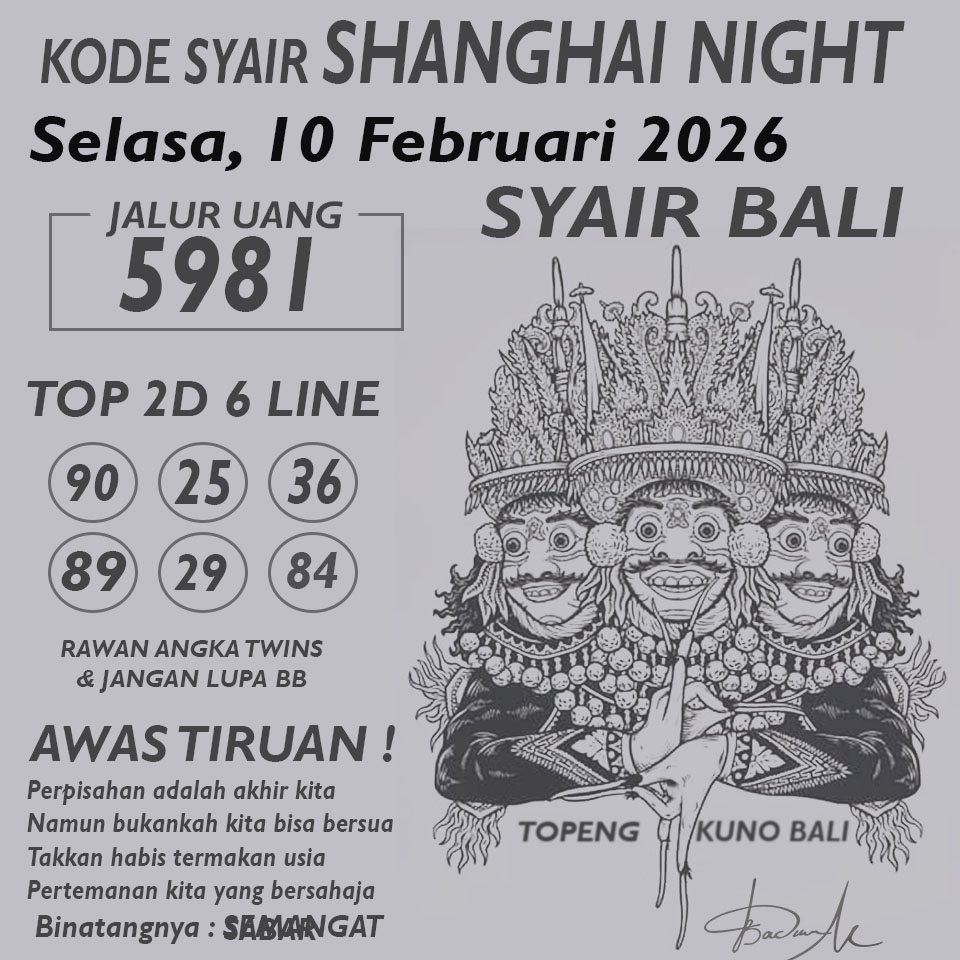 KODE SYAIR SHANGHAI NIGHT
Selasa, 10 Februari 2026
SYAIR BALI
JALUR UANG
5981
TOP 2D 6 LINE
90 25 36
89 29 84
RAWAN ANGKA TWINS
& JANGAN LUPA BB
AWAS TIRUAN !
Perpisahan adalah akhir kita
Namun bukankah kita bisa bersua
Takkan habis termakan usia
Pertemanan kita yang bersahaja
Binatangnya : SEMANGAT
SABAR
TOPENG KUNO BALI